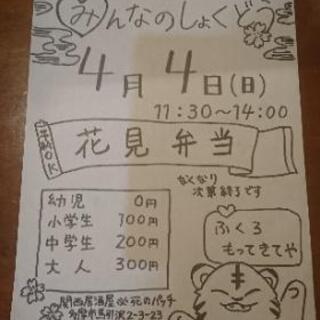 みんなのしょくどう
4月4日(日)
11:30～14:00
予約OK
花見弁当
なくなり
次第終了です
幼児 0円
小学生 100円
中学生 200円
大人 300円
ふくろ
もってきてや
関西居酒屋 花のパッチ
多摩市馬引沢2-3-23